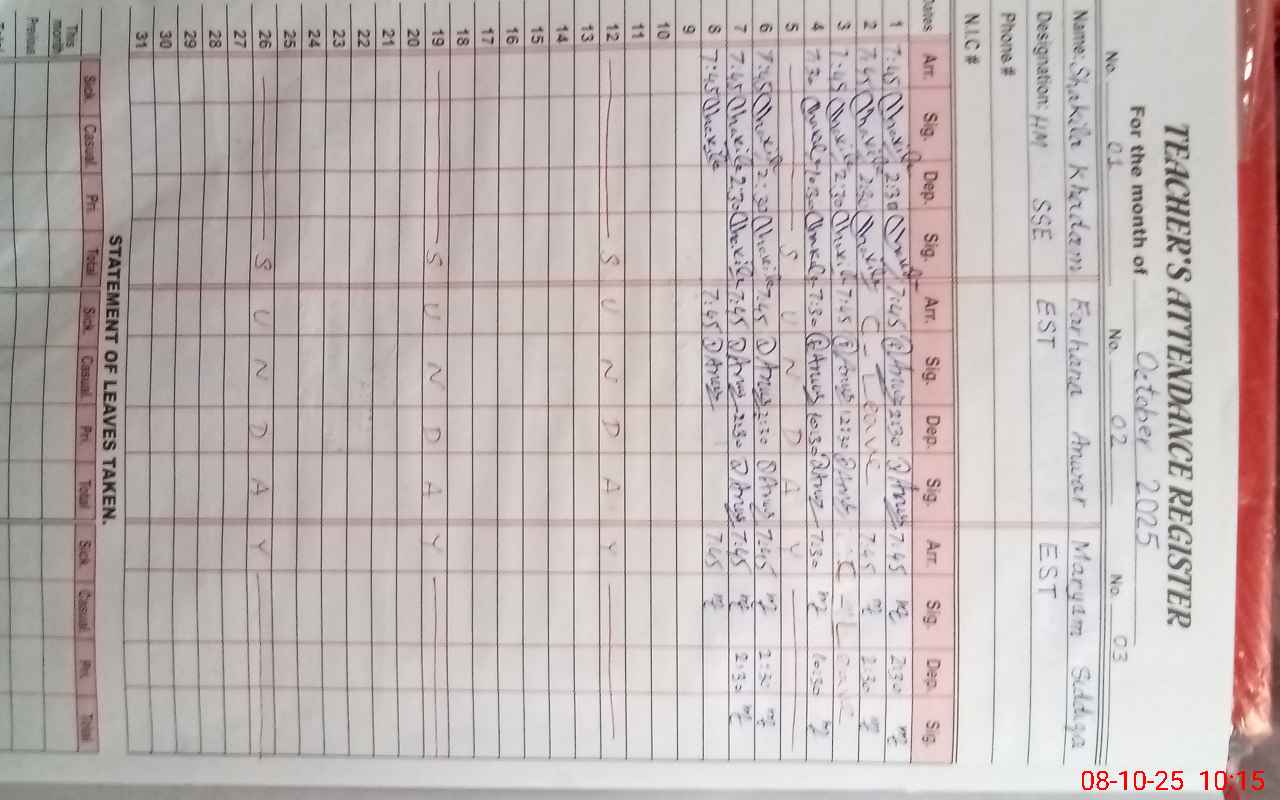 TEACHER'S ATTENDANCE REGISTER
For the month of October 2025
No. 01 No. 02 No. 03
Name: Shakila Khadam Farhana Anwar Maryam Siddiqa
Designation: HM SSE EST EST
Phone #
N.I.C #
Dates Arr. Sig. Dep. Sig. Arr. Sig. Dep. Sig. Arr. Sig. Dep. Sig.
1 7:45 2:30 7:45 2:30 7:45 2:30
2 7:45 2:30 C-Leave 7:45 2:30
3 7:45 2:30 7:45 12:30 C-Leave
4 7:30 10:30 7:30 10:30 7:30 10:30
5 SUNDAY
6 7:45 2:30 7:45 2:30 7:45 2:30
7 7:45 2:30 7:45 2:30 7:45 2:30
8 7:45 7:45 7:45
9
10
11
12 SUNDAY
13
14
15
16
17
18
19 SUNDAY
20
21
22
23
24
25
26 SUNDAY
27
28
29
30
31
STATEMENT OF LEAVES TAKEN.
Sick Casual Pri. Total Sick. Casual. Pri. Total Sick Casual. Pri. Total
This month
Previous
Total
08-10-25 10:15